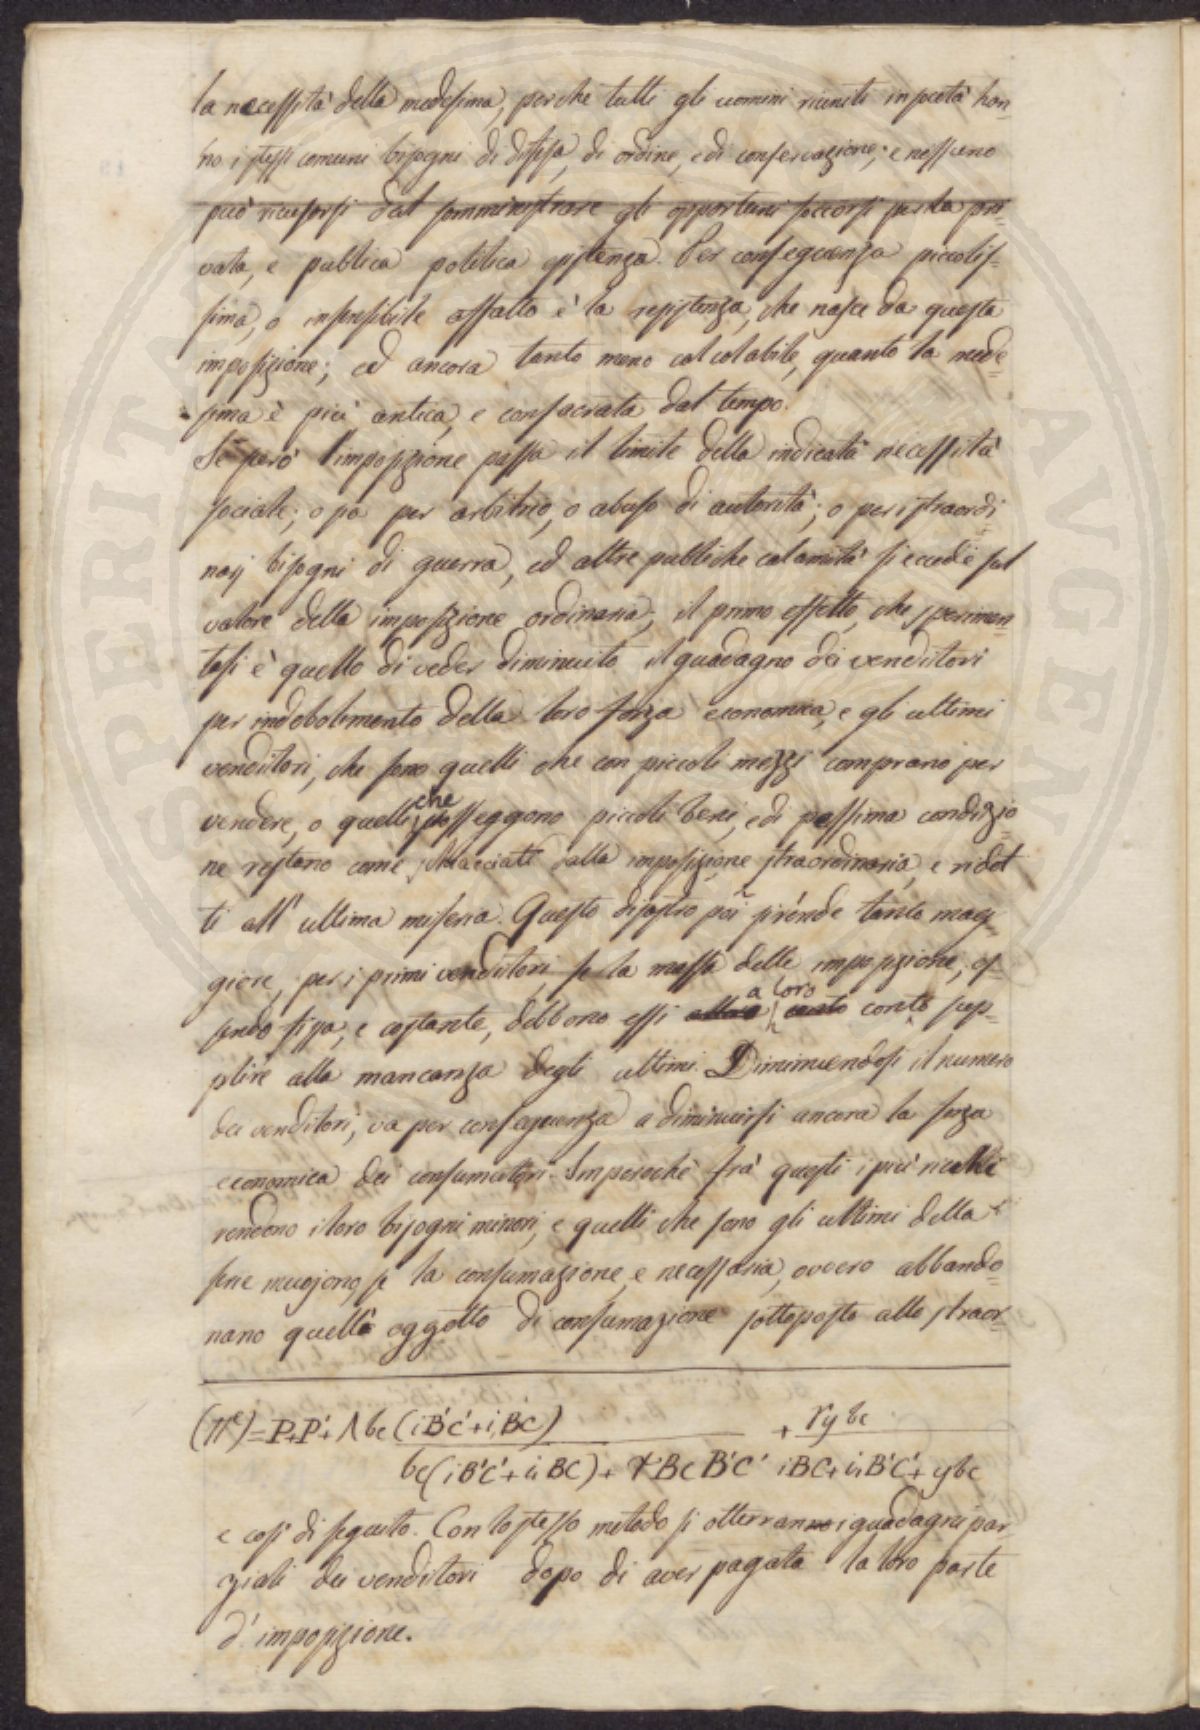 la necessità della medesima, perche tutti gli uomini riuniti in società han-
no i stessi comuni bisogni di difesa, di ordine, e di conservazione; e nessuno
può ricusarsi dal somministrare gli opportuni soccorsi per la pri-
vata, e publica politica esistenza. Per conseguenza piccolis-
sima, o insensibile affatto è la resistenza, che nasce da questa
imposizione; ed ancora tanto meno calcolabile, quanto la mede
sima è più antica, e consacrata dal tempo.
Se però l'imposizione passa il limite della indicata necessità
sociale; o sia per arbitrio, o abuso di autorità; o per istraordi
narj bisogni di guerra, ed altre publiche calamità si eccede sul
valore della imposizione ordinaria, il primo effetto, che sperimen
tasi è quello di veder diminuito il guadagno dei venditori
per indebolimento della loro forza economica, e gli ultimi
venditori, che sono quelli che con piccoli mezzi comprano per
vendere, o quelli che posseggono piccoli beni, e di pessima condizio
ne restano come schiacciati dalla imposizione straordinaria, e ridot
ti all' ultima miseria. Questo disastro poi si rende tanto mag-
giore, per i primi venditori se la massa delle imposizione, es-
sendo fissa, e costante, debbono essi a loro conto sup-
plire alla mancanza degli ultimi. Diminuendosi il numero
dei venditori, va per conseguenza a diminuirsi ancora la forza
economica dei consumatori. Imperochè frà questi i più ricchi
rendono i loro bisogni minori, e quelli che sono gli ultimi della
serie muojono, se la consumazione, e necessaria, ovvero abbando
nano quello oggetto di consumazione sottoposto alla straor-
(π^e) = P+P'+ Λbc (iB'C'+i,BC) + γybc
bc(iB'C'+i,BC)+γBcB'C' iBC+i,B'C'+ybc
e così di seguito. Con lo stesso metodo si otterranno i guadagni par
ziali dei venditori dopo di aver pagata la loro parte
d'imposizione.
SPERITAN
AVGEN